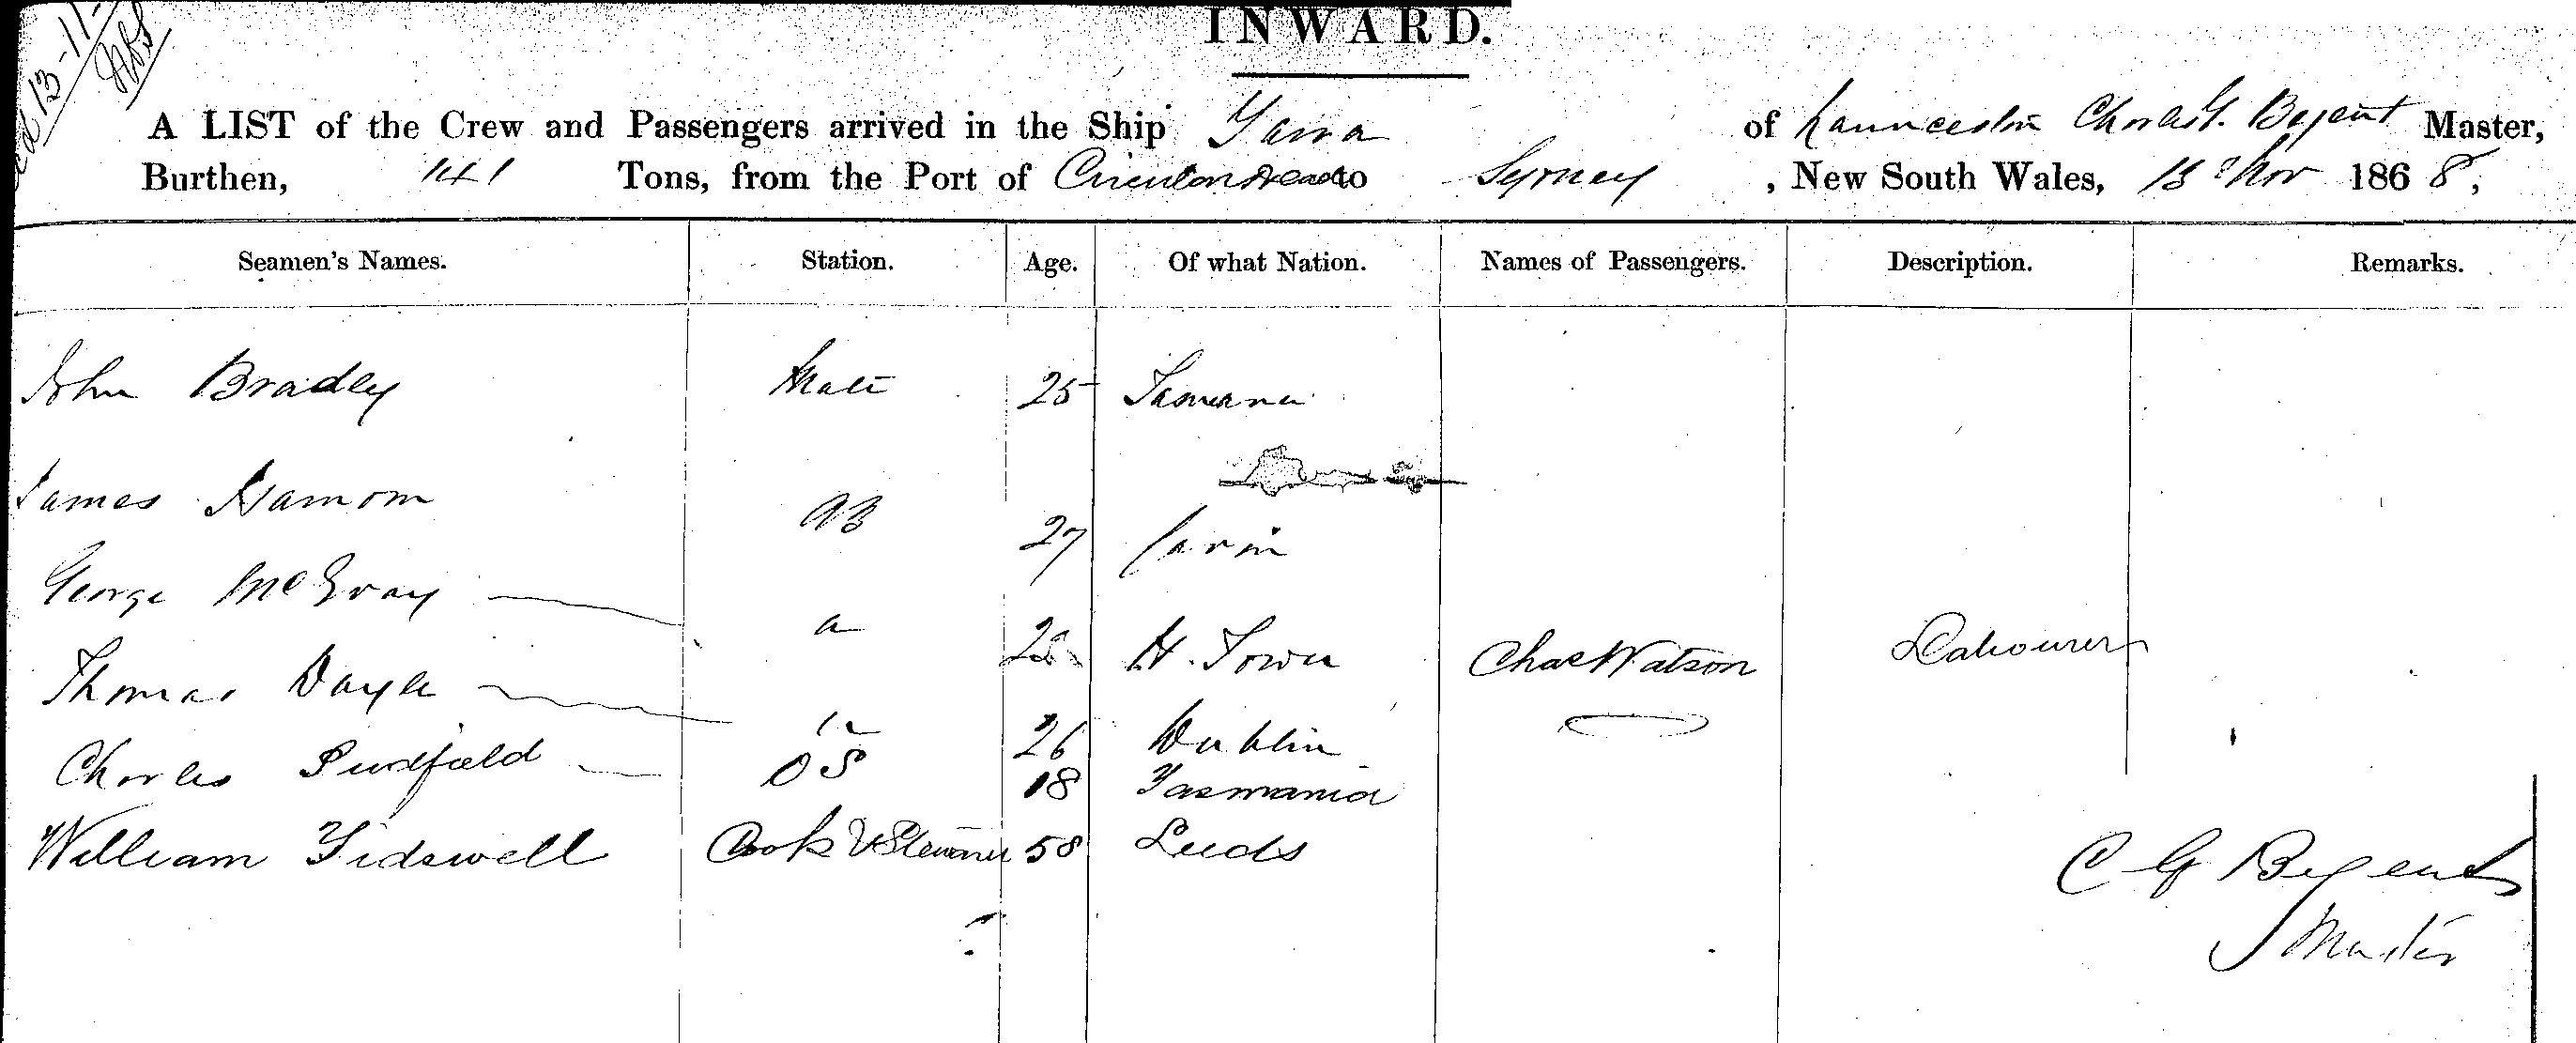 13-11-
INWARD.
A LIST of the Crew and Passengers arrived in the Ship Yarra of Launceston Charles G. Bryent Master,
Burthen, 141 Tons, from the Port of Circular Head to Sydney, New South Wales, 13 Nov 1868,
Seamen's Names. Station. Age. Of what Nation. Names of Passengers. Description. Remarks.
John Bradley Mate 25
James 
AB 27
George McGray
H. Town Chas Watson Labourer
Thomas Doyle
26 Dublin
Charles O S 18 Tasmania
William Tidswell Cook & Steward 58 Leeds
C G
Master